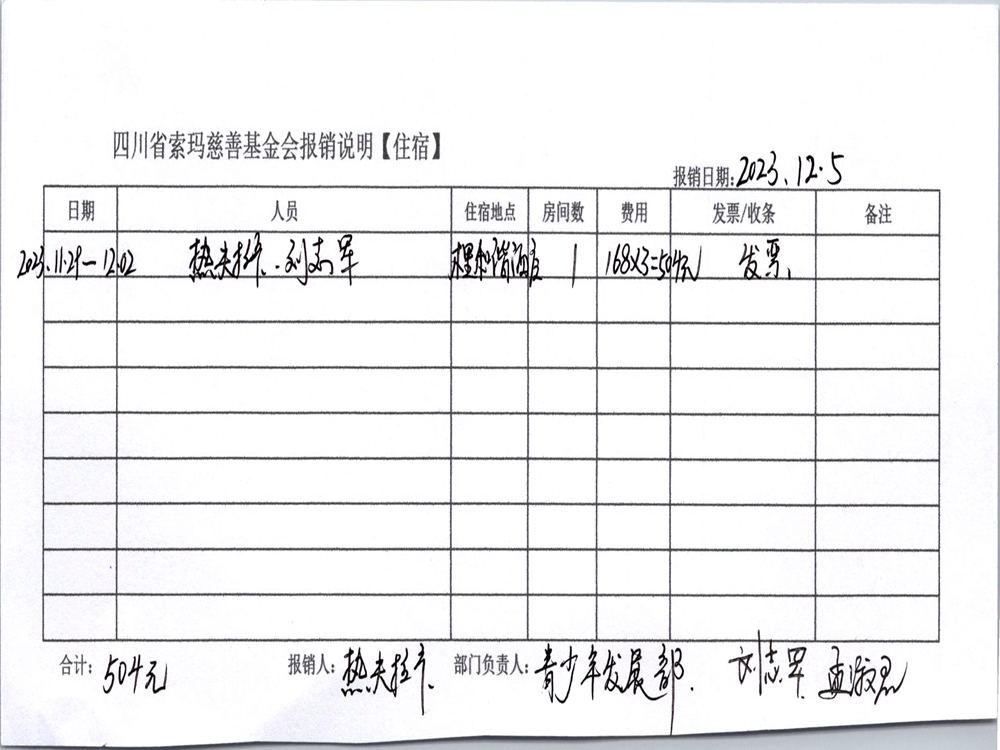 四川省索玛慈善基金会报销说明【住宿】
报销日期:2023.12.5
日期 人员 住宿地点 房间数 费用 发票/收条 备注
2023.11.29-12.02 热夫拉 刘志军 酒店 1 168×3=504元 发票
合计: 504元 报销人: 热夫拉 部门负责人: 青少年发展部. 刘志军